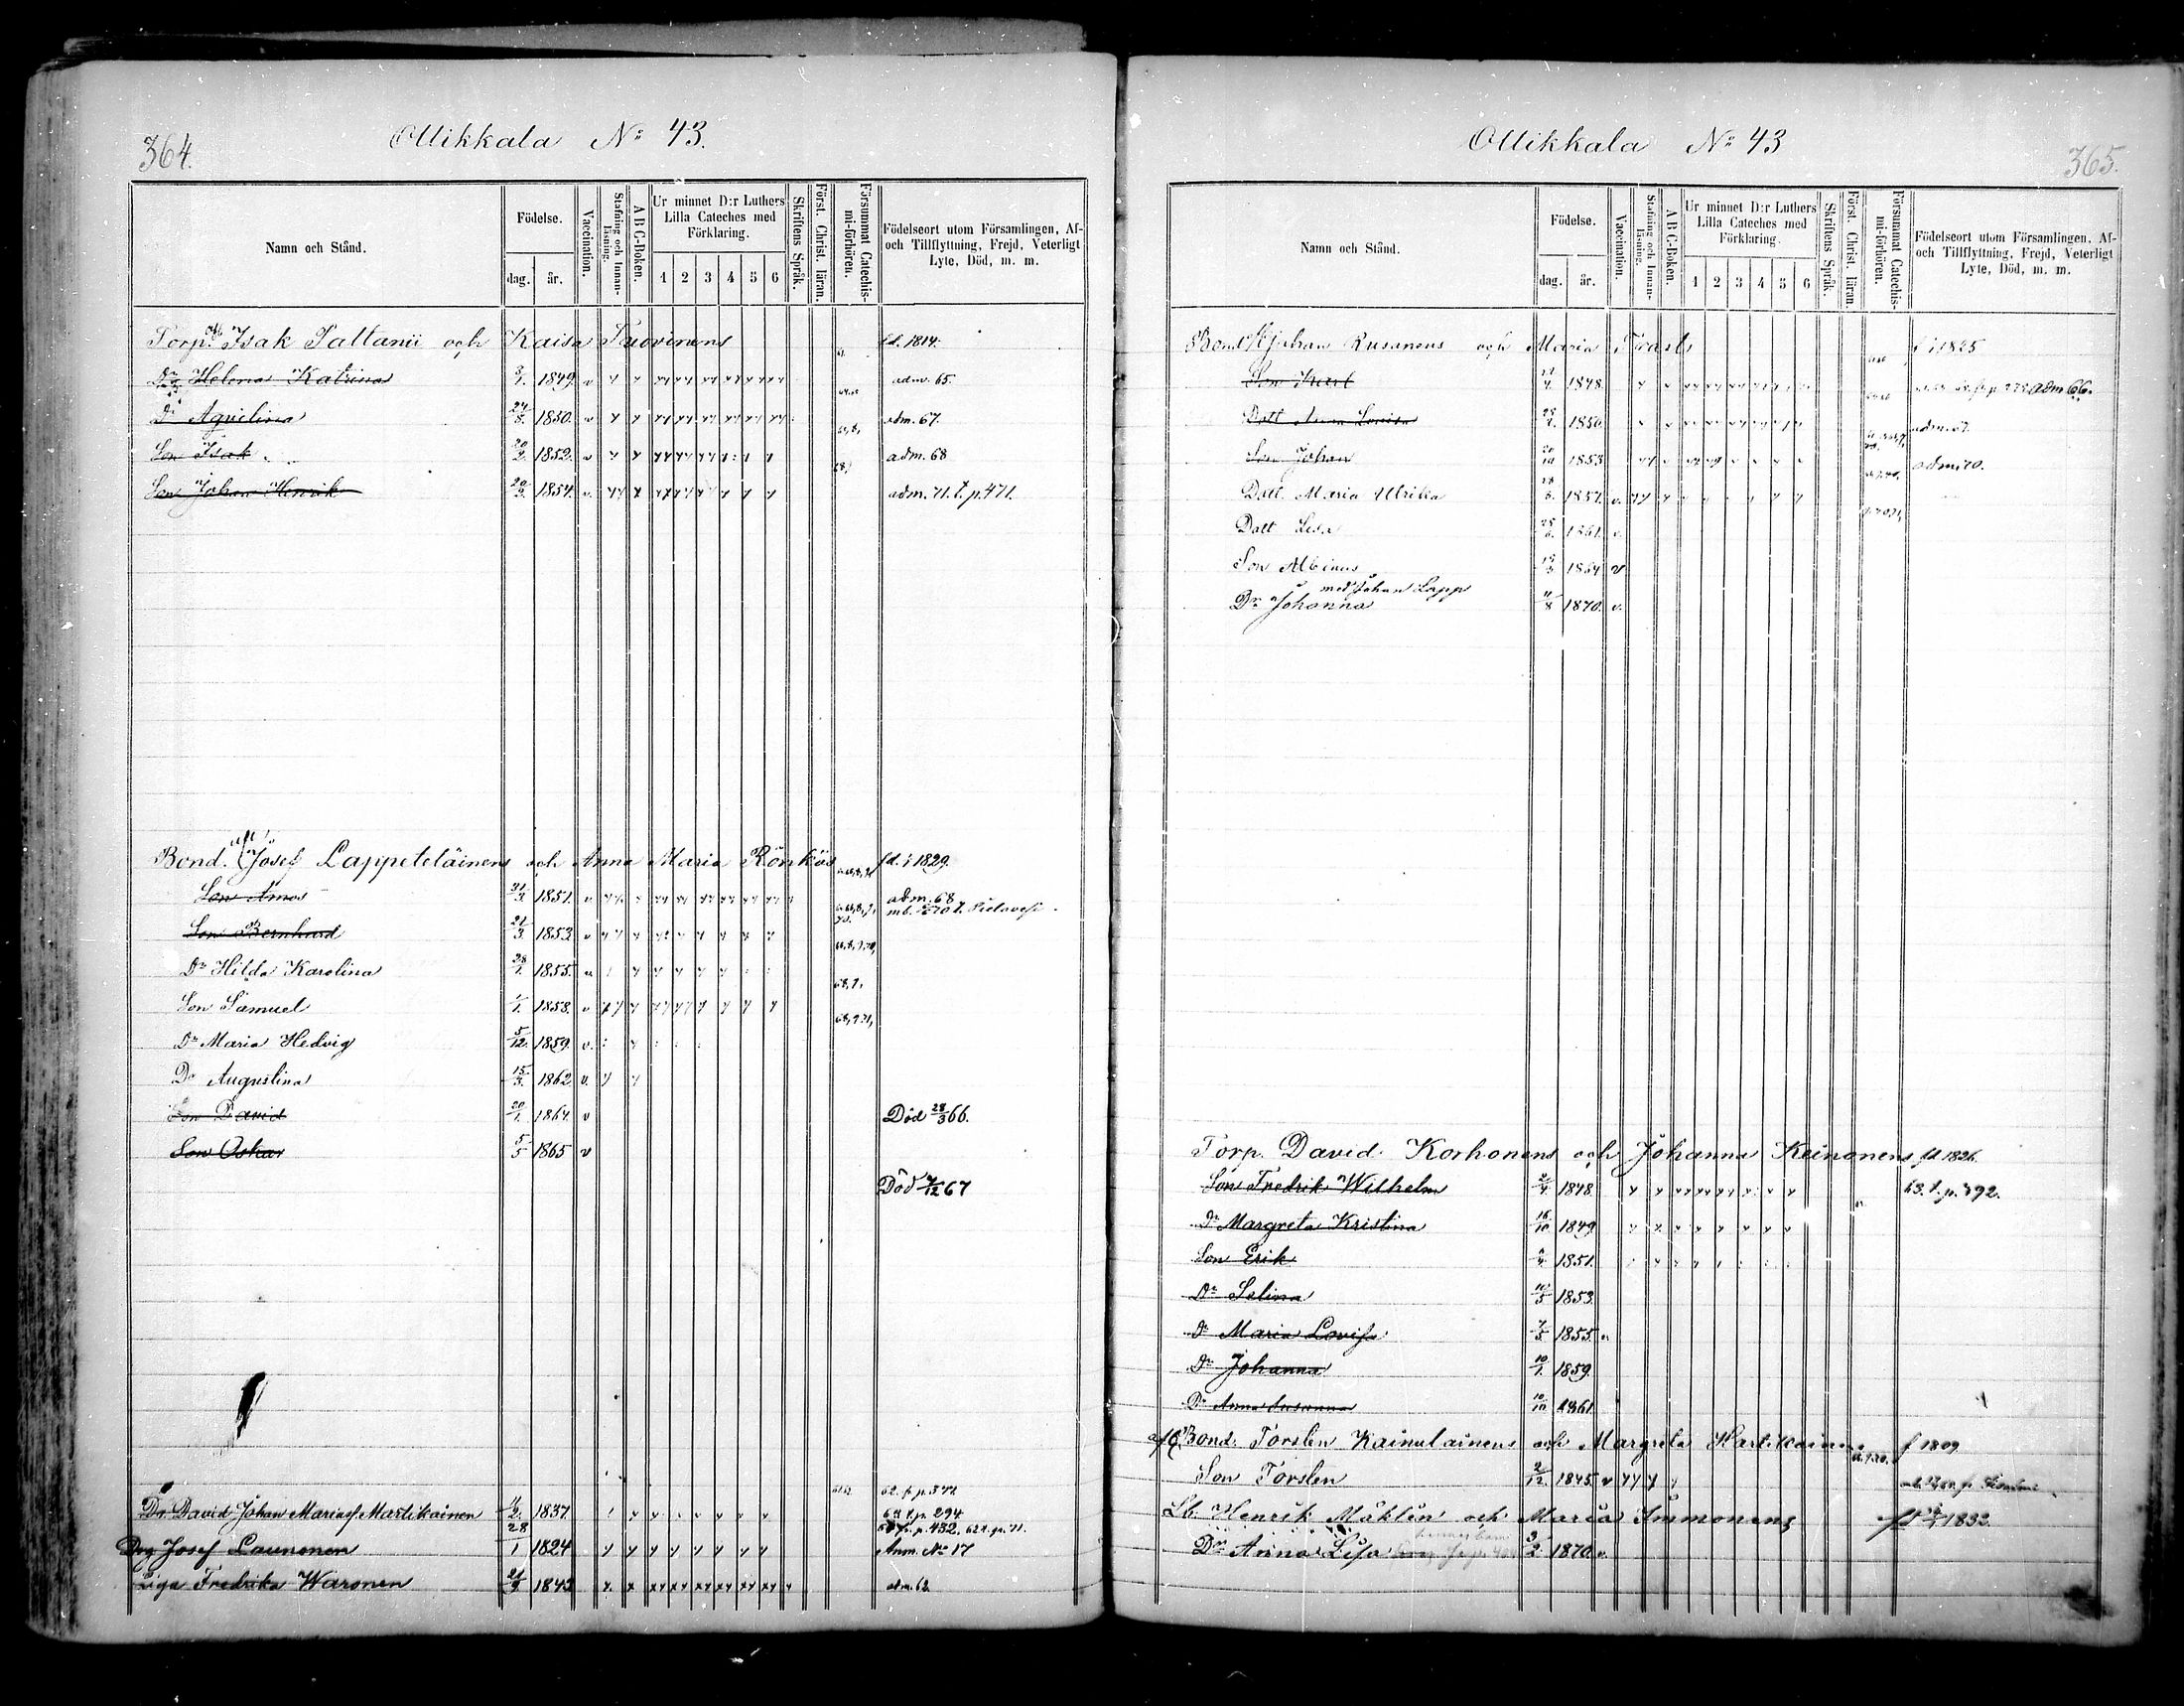 364.
Ollikkala No 43.
Namn och Stånd.
Födelse.
dag.
år.
Vaccination.
Stafning och Innanläsning.
A B C-Boken.
Ur minnet D:r Luthers Lilla Cateches med Förklaring.
1 2 3 4 5 6
Skriftens Språk.
Först. Christ. läran.
Försummat Catechismi-förhören.
Födelseort utom Församlingen, Af- och Tillflyttning, Frejd, Veterligt Lyte, Död, m. m.
Torp. Isak Paltanii och Kaisa fd. 1814.
Dr Helena Katrina 3/1. 1849. v adm. 65.
Dr Aqvilina 24/8. 1850. v adm. 67.
Son Isak 20/2. 1852. v adm. 68
Son Johan Henrik 20/3. 1854. v. adm. 71. t. p. 471.
Bond. Josef Lappeteläinens och Anna Maria Rönkäs fd. i 1829.
Son Amos 1851. v adm. 68
Son Bernhard 21/3. 1853 v
Dr Hilda Karolina 28/1. 1855.
Son Samuel 1858. v
Dr Maria Hedvig 5/12. 1859. v.
Dr Augustina 15/3. 1862 v.
Son David 20/1. 1864. v Död 28/3 66.
Son Oskar 5/5 1865 v
Död 67
62. f. p. 372
David Johan Mariasf. Martikainen 1837. 294
Drg Josef Launonen 28/1 1824 Anm. No 17
Piga Fredrika Waronen 21/9 1843 adm. 62.
365.
Ollikkala No 43
Namn och Stånd.
Födelse.
dag.
år.
Vaccination.
Stafning och Innanläsning.
A B C-Boken.
Ur minnet D:r Luthers Lilla Cateches med Förklaring.
1 2 3 4 5 6
Skriftens Språk.
Först. Christ. läran.
Försummat Catechismi-förhören.
Födelseort utom Församlingen, Af- och Tillflyttning, Frejd, Veterligt Lyte, Död, m. m.
Bond. Johan Rusanens och Maria f i 1825
Son Karl 1848. adm 66.
Dott Anna Lovisa 1850
Son Johan 1853 adm 70.
Dott. Maria Ulrika 1857. v.
Dott Lisa 1861.
Son Albinus 1864 v
med Johan Lapp
Dr Johanna 11/8 1870. v.
Torp. David Korhonens och Johanna Keinonens fd 1826.
Son Fredrik Wilhelm 1848.
Dr Margreta Kristina 16/10 1849
Son Erik 1851.
Dr Selina 1853.
Dr Maria Lovisa 1855.
Dr Johanna 10/1. 1859.
Dr Anna Susanna 10/10 1861
Bond. Torsten Kainulainens och Margreta Hartikainens f 1809
Son Torsten 2/12. 1845. v
Henrik Måklin och Maria Immonens 1832.
Dr Anna Lisa 1870. v.